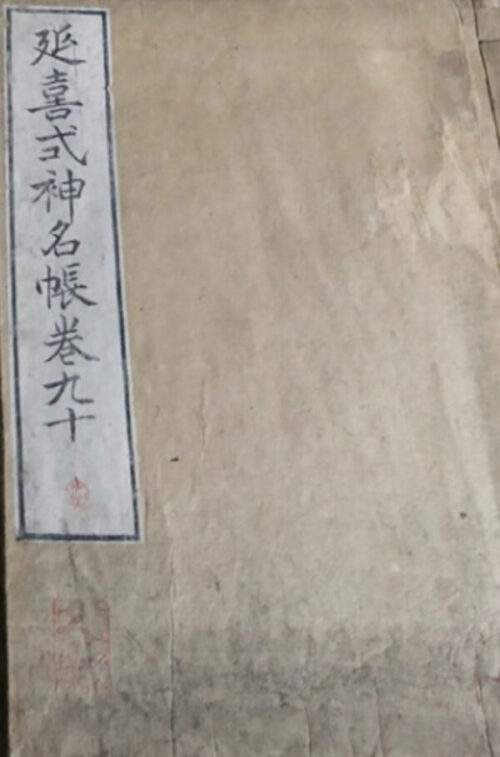 延喜式神名帳巻九十